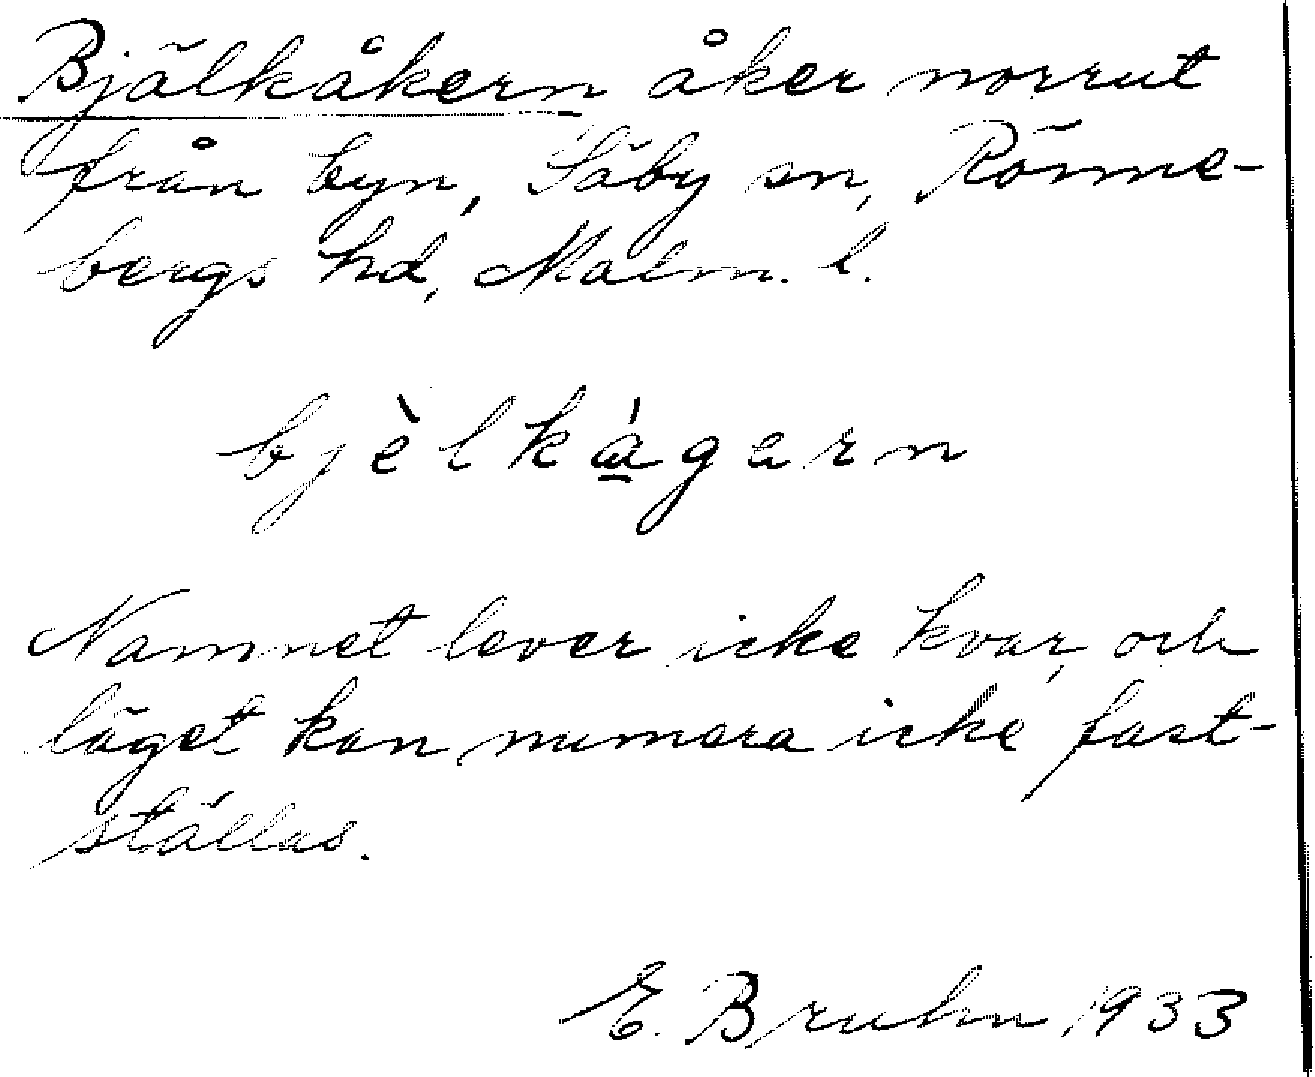 Bjälkåkern åker norrut
från byn, Säby sn, Rönne-
bergs hd, Malm. l.
bjèlkág̱ern
Namnet lever icke kvar, och
läget kan numera icke fast-
ställas.
E. Bruhn 1933